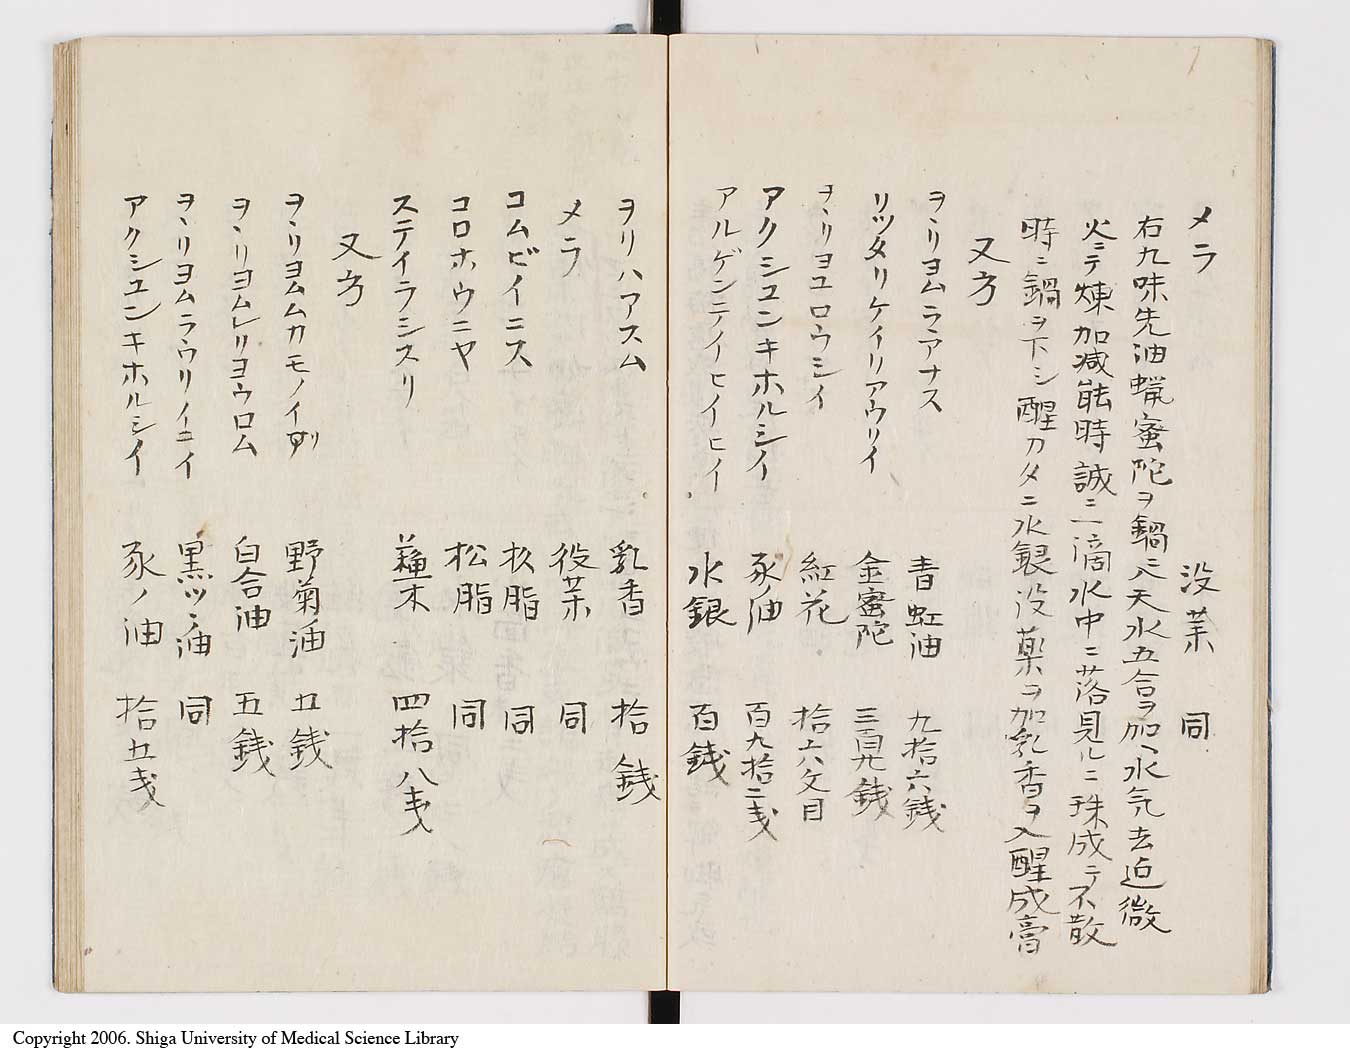 メラ　没薬　同
右九味先油蝋蜜陀ヲ鍋ニ入天水五合ヲ加ヘ水気去迫微
火ニテ煉加減能時誠ニ一滴水中ニ落見ルニ珠成テ不散
時ニ鍋ヲ下シ醒カタニ水銀没薬ヲ加乳香ヲ入醒成膏
又方
ヲヽリヨムラアナス　青虹油　九拾六銭
リツタリケイリアウリイ　金蜜陀　三百九銭
ヲヽリヨユロウシイ　紅花　拾六文目
アクシユンキホルシイ　豕ノ油　百九拾二戋
アルゲンテイノヒイノヒイ　水銀　百銭
ヲリハアスム　乳香　拾銭
メラ　役薬　同
コムビイニス　松脂　同
コロホウニヤ　松脂　同
ステイラシスリ　蘓木　四拾八戋
又方
ヲヽリヨムムカモノイ　野菊ノ油　五銭
ヲヽリヨムレリヨウロム　白合油　五銭
ヲヽリヨムラウリイニイ　黒ツヽ油　同
アクシユンキホルシイ　豕ノ油　拾五戋
Copyright 2006. Shiga University of Medical Science Library